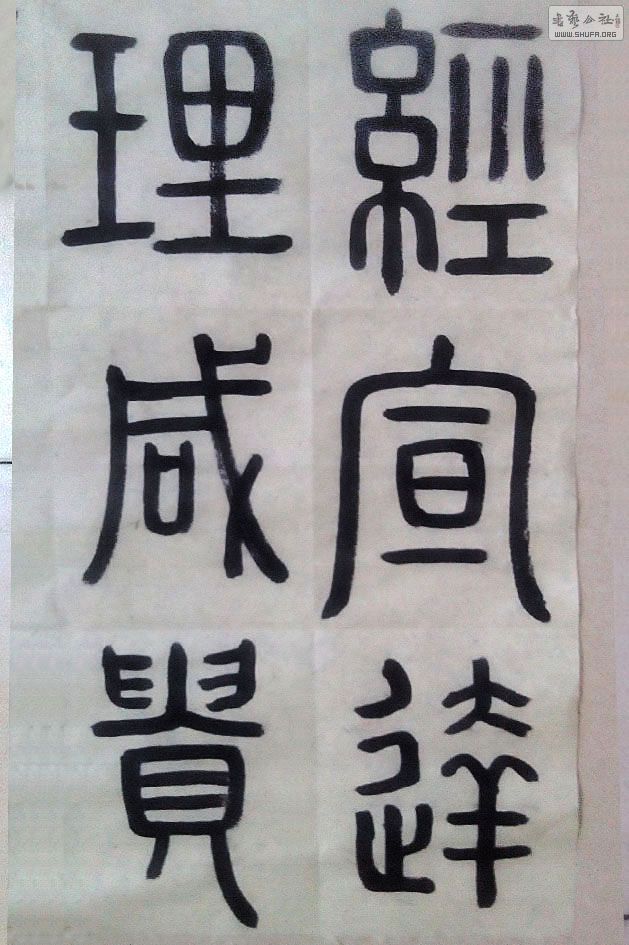 經宣達
理咸貴
書藝公社
WWW.SHUFA.ORG